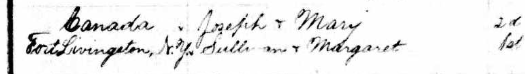 Canada " Joseph & Mary 2d
Fort Livingston, N.Y. Sullivan & Margaret 1st